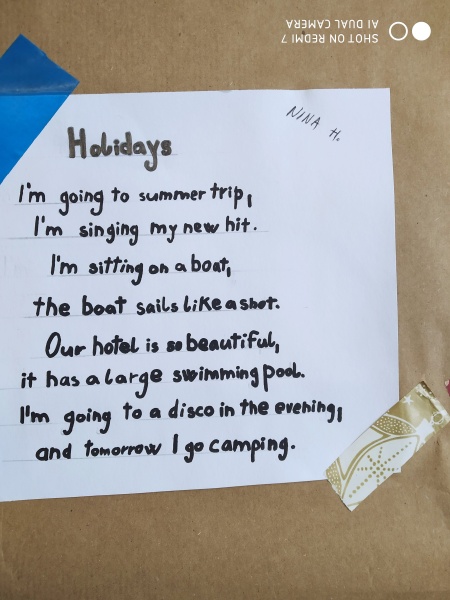 SHOT ON REDMI 7
AI DUAL CAMERA
NINA H.
Holidays
I'm going to summer trip,
I'm singing my new hit.
I'm sitting on a boat,
the boat sails like a shot.
Our hotel is so beautiful,
it has a large swimming pool.
I'm going to a disco in the evening,
and tomorrow I go camping.